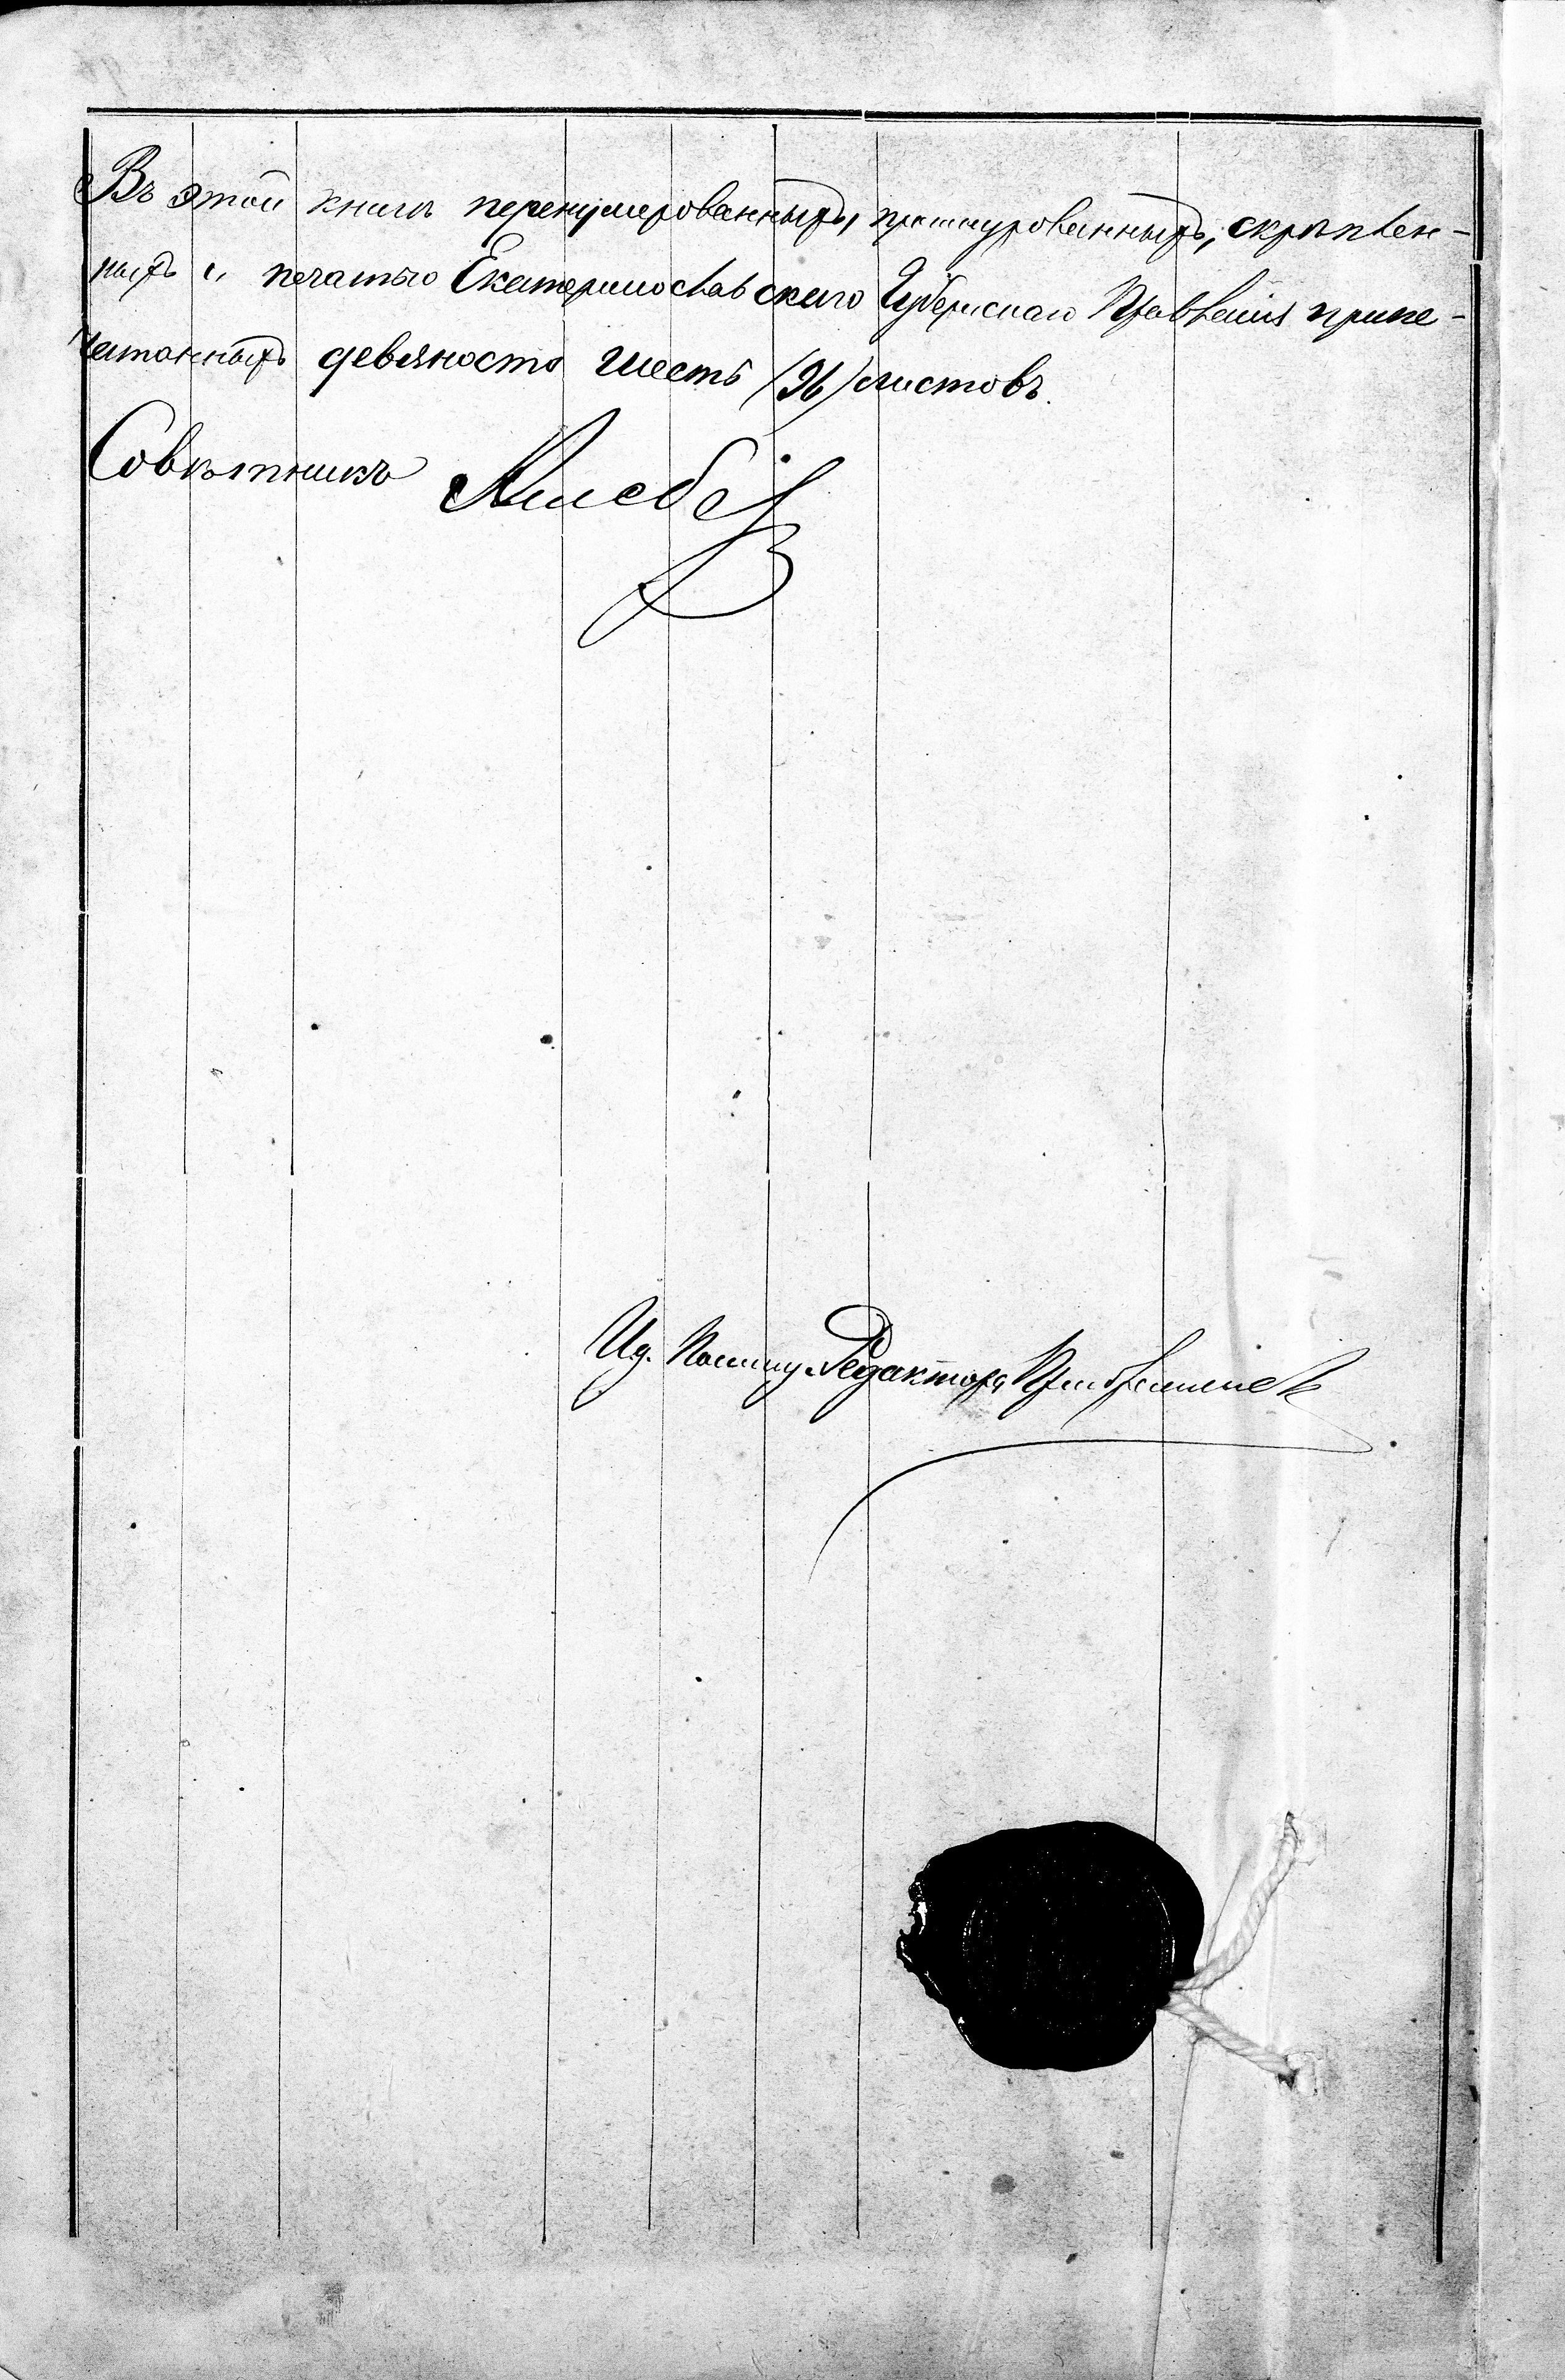 Въ этой книгѣ перенумерованныхъ, прошнурованныхъ, скрѣплен-
ныхъ и печатью Екатеринославскаго Губернскаго Правленія припе-
чатанныхъ девяносто шесть (96) листовъ.
Совѣтникъ
И.д. Помощн. Редактора